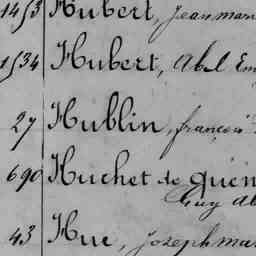 1453 Hubert, Jean mar
1534 Hubert, Abel Em
27 Hublin, françois
690 Huchet de Quén
Guy Al
43 Hue, Joseph mar